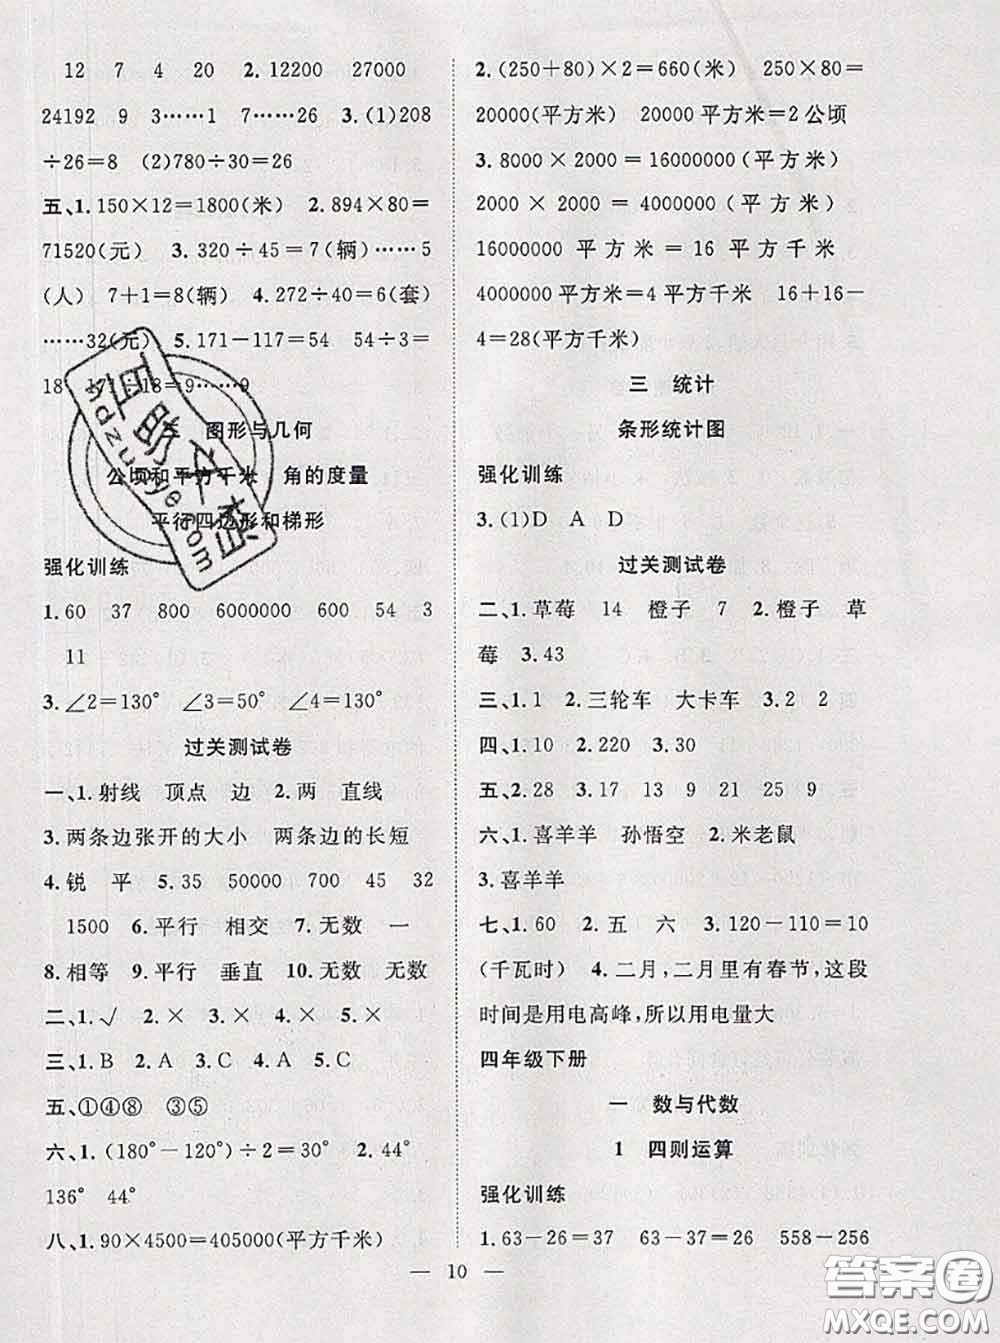 12 7 4 20 2.12200 27000
24192 9 3……1 7……26 3.(1)208
÷26=8 (2)780÷30=26
五、1.150×12=1800(米) 2.894×80=
71520(元) 3.320÷45=7(辆)……5
(人) 7+1=8(辆) 4.272÷40=6(套)
……32(元) 5.171-117=54 54÷3=
18 171÷18=9……9
图形与几何
公顷和平方千米 角的度量
平行四边形和梯形
强化训练
1.60 37 800 6000000 600 54 3
11
3.∠2=130° ∠3=50° ∠4=130°
过关测试卷
一、1.射线 顶点 边 2.两 直线
3.两条边张开的大小 两条边的长短
4.锐 平 5.35 50000 700 45 32
1500 6.平行 相交 7.无数 一
8.相等 9.平行 垂直 10.无数 无数
二、1.√ 2.× 3.× 4.× 5.×
三、1.B 2.A 3.C 4.A 5.C
五、①④⑧ ③⑤
六、1.(180°-120°)÷2=30° 2.44°
136° 44°
八、1.90×4500=405000(平方千米)
2.(250+80)×2=660(米) 250×80=
20000(平方米) 20000平方米=2公顷
3.8000×2000=16000000(平方米)
2000×2000=4000000(平方米)
16000000平方米=16平方千米
4000000平方米=4平方千米 16+16-
4=28(平方千米)
三 统计
条形统计图
强化训练
3.(1)D A D
过关测试卷
二、1.草莓 14 橙子 7 2.橙子 草
莓 3.43
三、1.1 2.三轮车 大卡车 3.2 2
四、1.10 2.220 3.30
五、2.28 3.17 13 9 21 25 9
六、1.喜羊羊 孙悟空 2.米老鼠
3.喜羊羊
七、1.60 2.五 六 3.120-110=10
(千瓦时) 4.二月,二月里有春节,这段
时间是用电高峰,所以用电量大
四年级下册
一 数与代数
1 四则运算
强化训练
1.63-26=37 63-37=26 558-256
— 10 —
答案圈
MXQE.COM